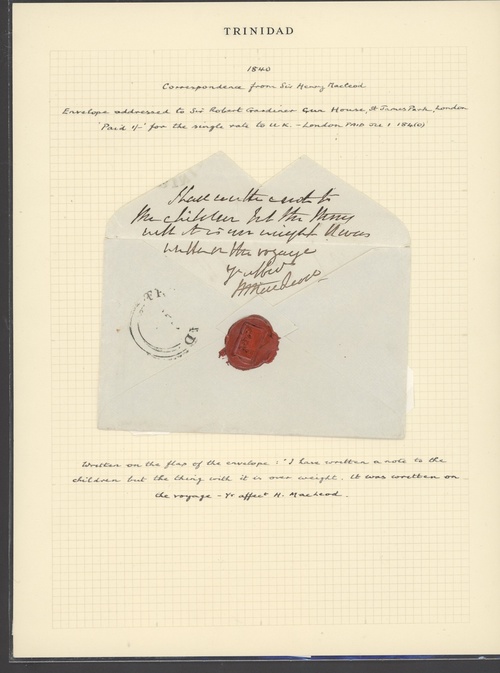 TRINIDAD
1840
Correspondence from Sir Henry MacLeod
Envelope addressed to Sir Robert Gardiner Gun House, St James Park, London
'Paid 1/-' for the single rate to U.K. - London PAID 1 184(0)
I have written a note to
the children but the thing
with it is over weight. It was
written on the voyage
Yr affect
H MacLeod
Written on the flap of the envelope : "I have written a note to the
children but the thing with it is over weight. It was written on
the voyage - Yr affect H. MacLeod.